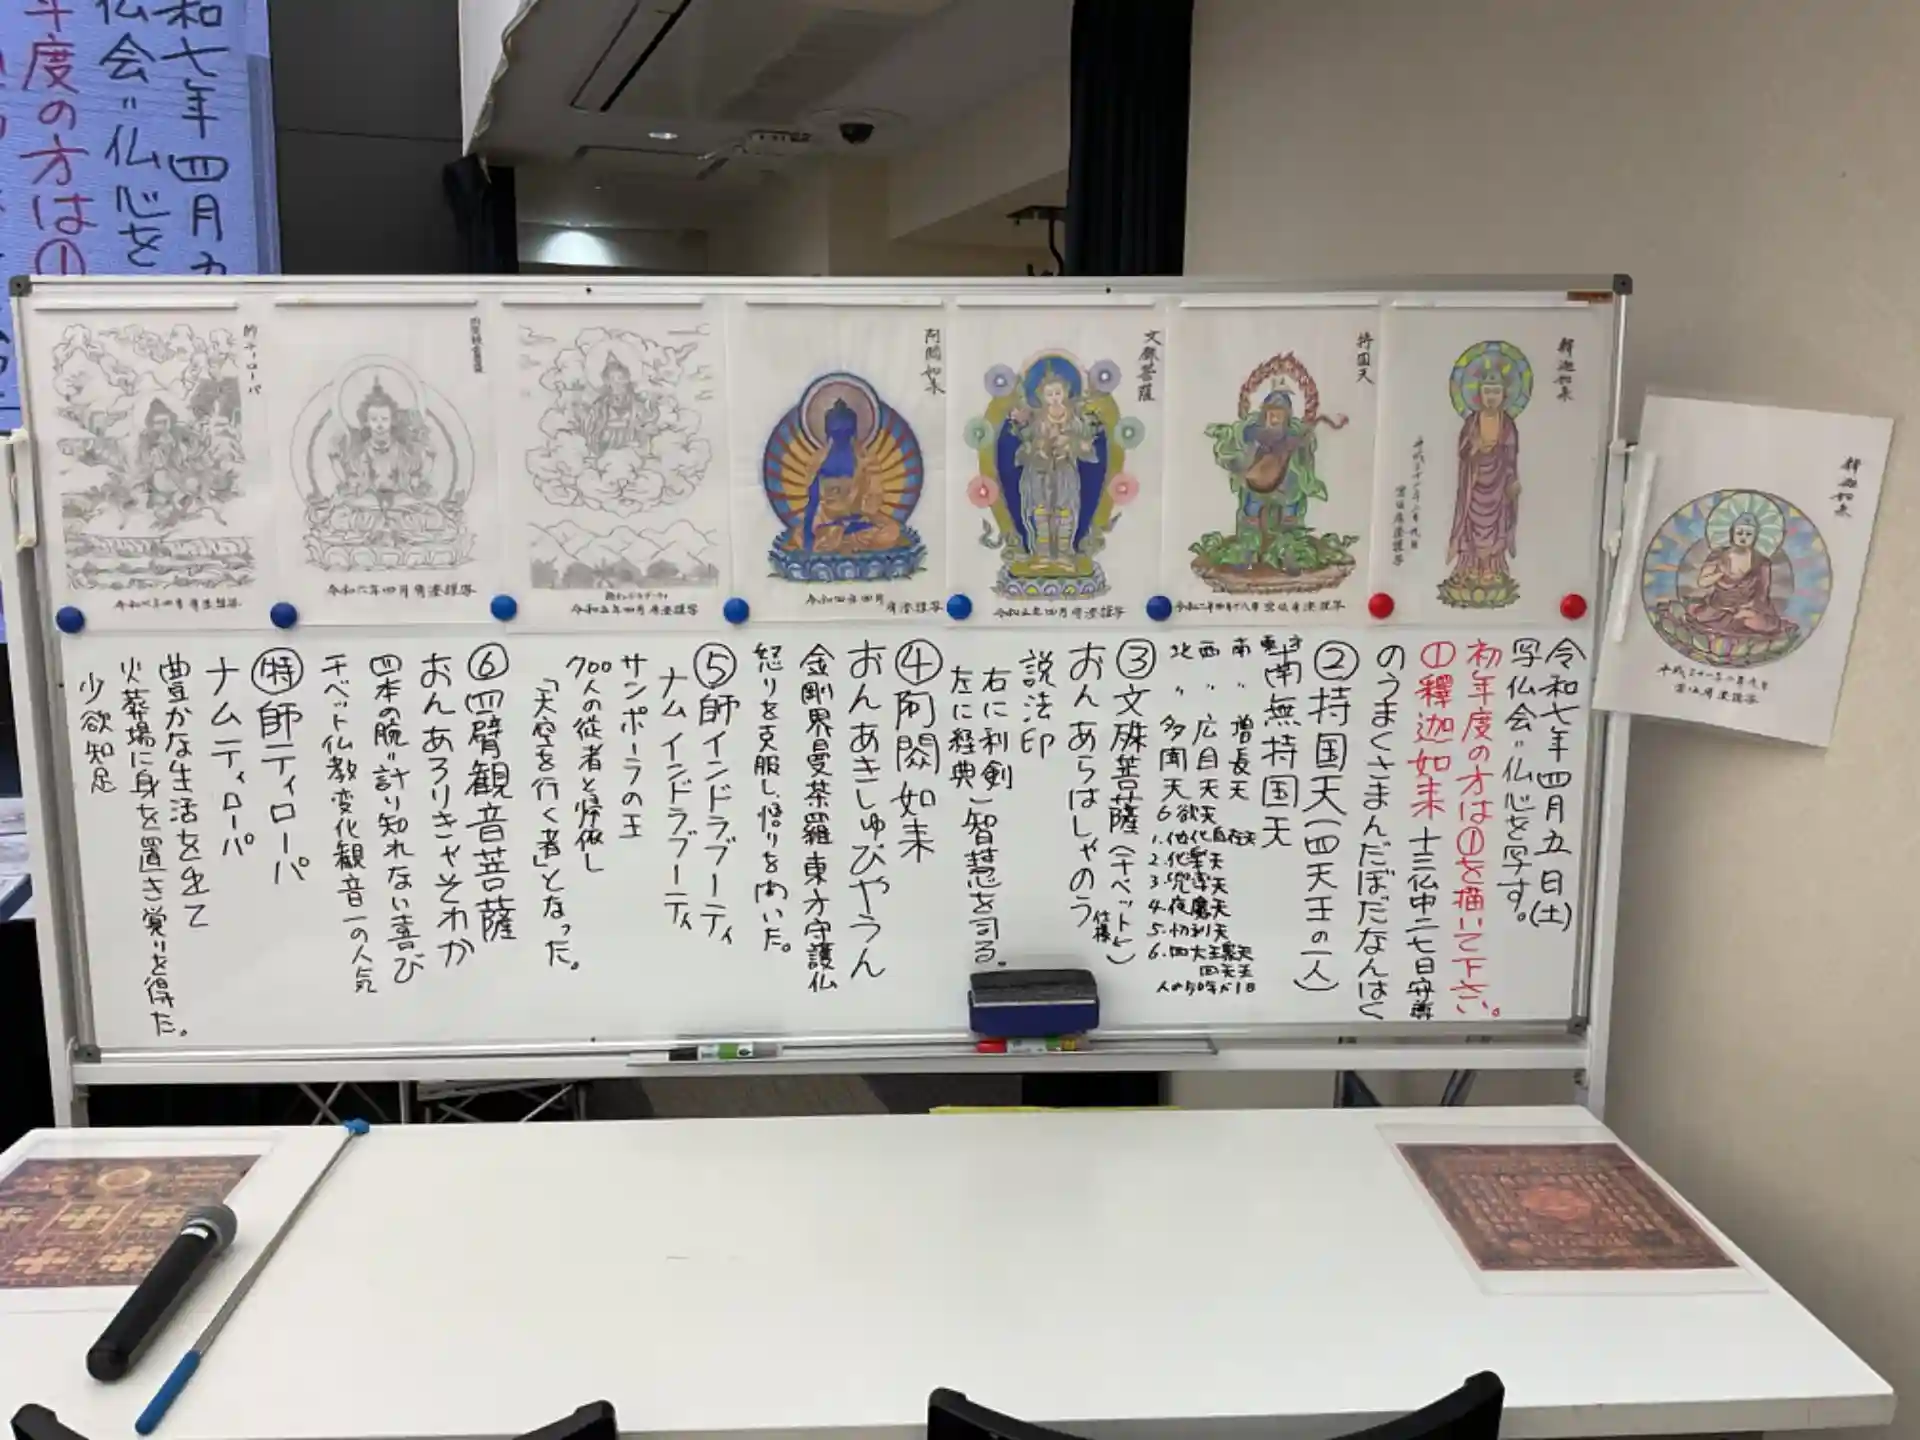 令和七年四月五日(土)
写仏会〃仏心を写す。
初年度の方は①を描いて下さい。
①釋迦如来 十三仏中二七日守尊
のうまくさまんだぼだなんばく
②持国天(四天王の一人)
東方
南無持国天
南〃増長天
西〃広目天
北〃多聞天
6欲天
1.他化自在天
2.化楽天
3.兜率天
4.夜摩天
5.忉利天
6.四大王衆天
四天王
人の50年が1日
③文殊菩薩(チベット仕様)
おんあらはしゃのう
説法印
右に利剣
左に経典
智慧を司る。
④阿閦如来
おんあきしゅびやうん
金剛界曼茶羅東方守護仏
怒りを克服し、悟りを開いた。
⑤師インドラブーティ
ナムインドラブーティ
サンポーラの王
700人の従者と帰依し
「天空を行く者」となった。
⑥四臂観音菩薩
おんあろりきゃそわか
四本の腕〃計り知れない喜び
チベット仏教変化観音一の人気
特師ティローパ
ナムティローパ
豊かな生活を出て
火葬場に身を置き覚りを得た。
少欲知足
釋迦如来
釋迦如来
持国天
文殊菩薩
阿閦如来
師ティローパ
令和四年四月
令和六年四月
令和五年四月
和七年四月五
仏会〃仏心を
年度の方は①